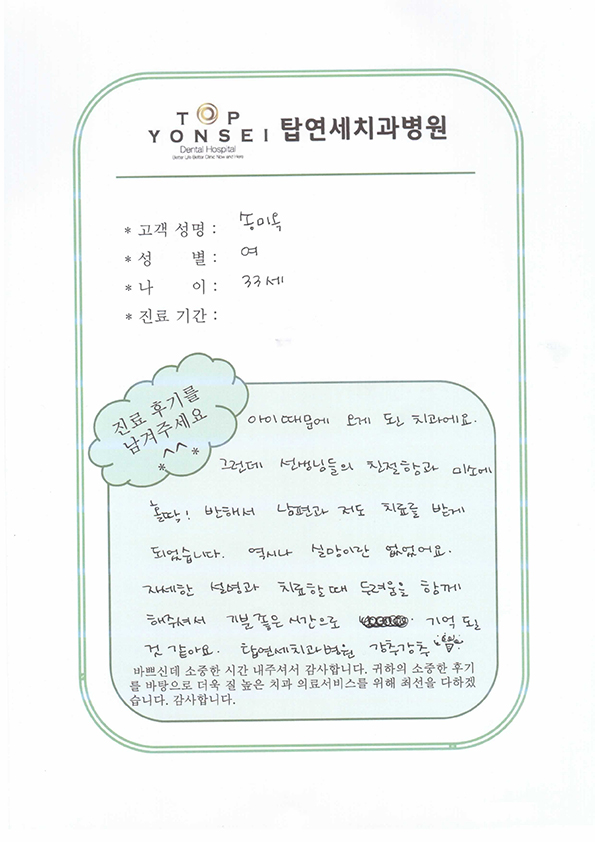 TOP
YONSEI 탑연세치과병원
Dental Hospital
Better Life Better Clinic Now and Here
* 고객 성명 : 송미옥
* 성 별 : 여
* 나 이 : 33세
* 진료 기간 :
진료 후기를
남겨주세요
*^^*
아이때문에 오게 된 치과에요.
그런데 선생님들의 친절함과 미소에
홀딱! 반해서 남편과 저도 치료를 받게
되었습니다. 역시나 실망이란 없었어요.
자세한 설명과 치료할때 두려움을 함께
해주셔서 기분 좋은 시간으로 기억 될
것 같아요. 탑연세치과병원 강추강추
바쁘신데 소중한 시간 내주셔서 감사합니다. 귀하의 소중한 후기
를 바탕으로 더욱 질 높은 치과 의료서비스를 위해 최선을 다하겠
습니다. 감사합니다.